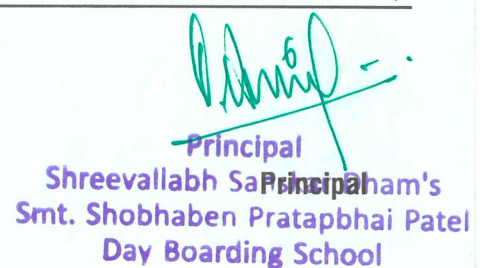 Principal
Shreevallabh
Principal
Dham's
Smt. Shobhaben Pratapbhai Patel
Day Boarding School